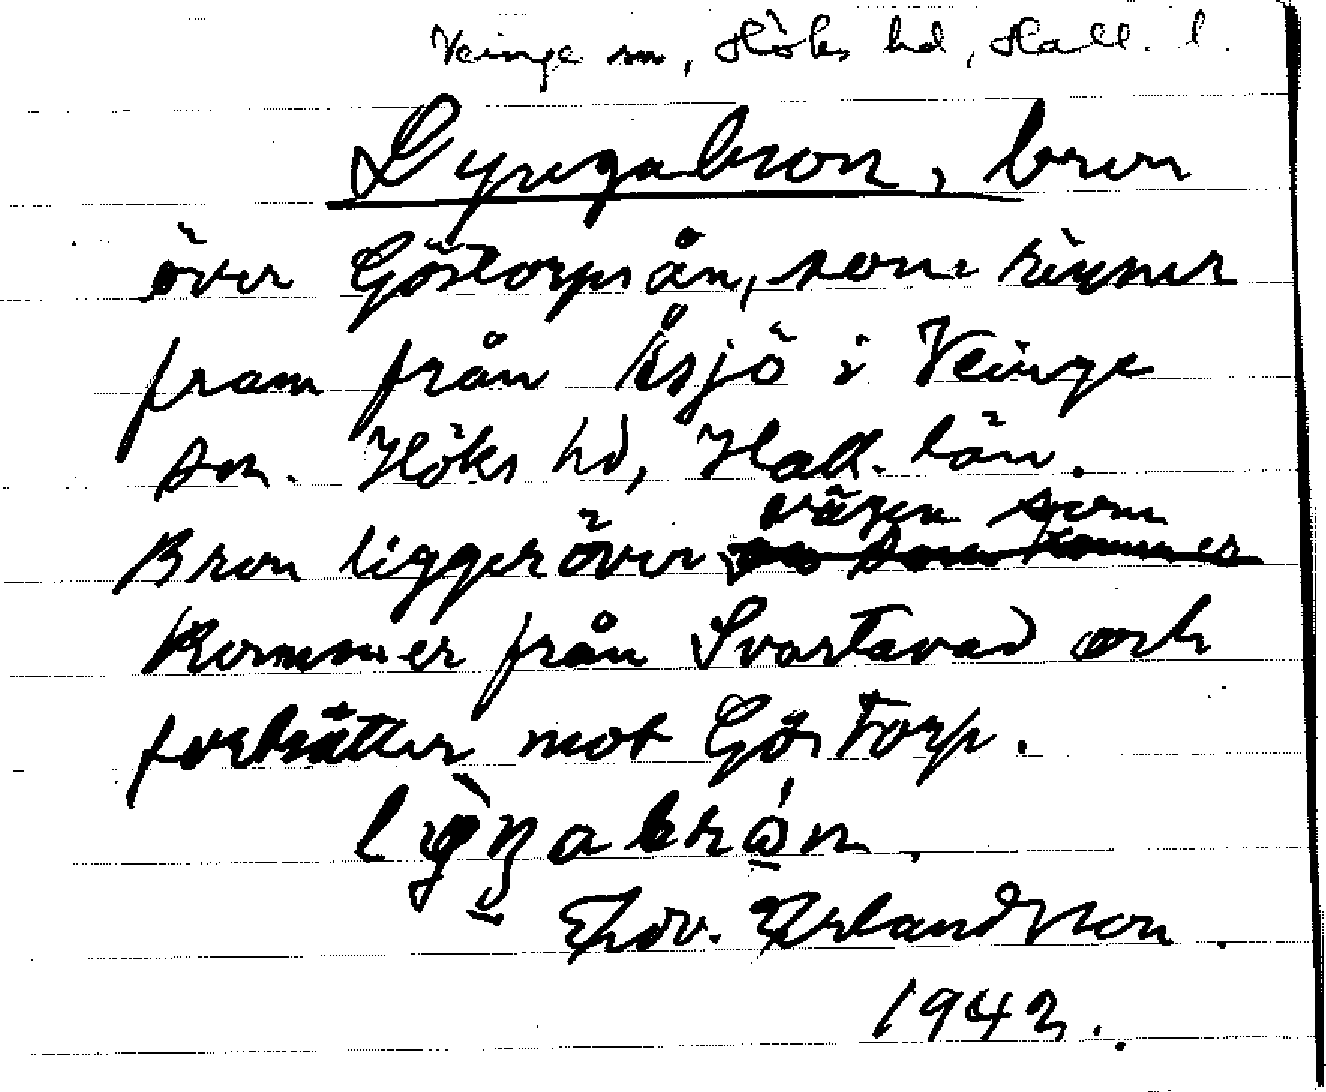 Veinge sn, Höks hd, Hall. l.
Lyngabron, bron
över Göstorpsån, som rinner
fram från Åsjö i Veinge
sn. Höks hd, Hall. län.
vägen som
Bron ligger över som kommer
kommer från Svartavad och
fortsätter mot Göstorp.
Edv. Erlandsson.
1942.